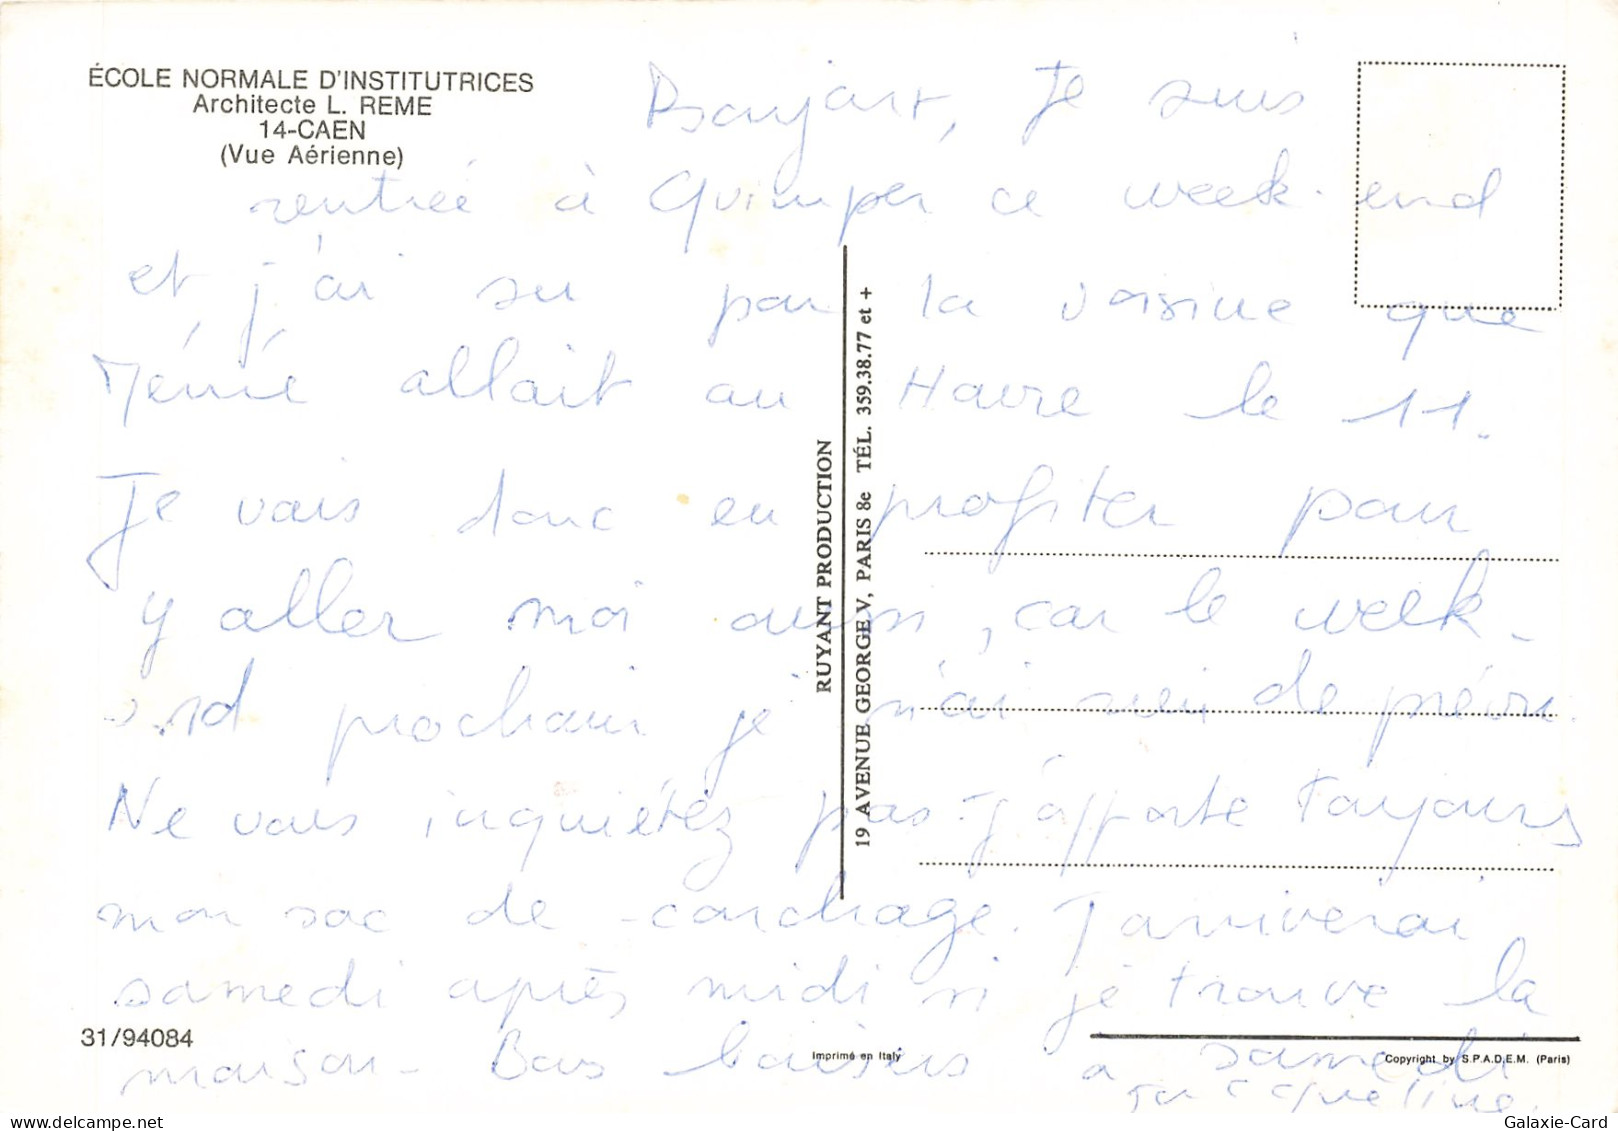 ÉCOLE NORMALE D'INSTITUTRICES
Architecte L. REME
14-CAEN
(Vue Aérienne)
Bonjour, Je suis
rentrée à Quimper ce week-end
et j'ai su par la voisine que
Mémé allait au Havre le 11.
Je vais donc en profiter pour
y aller moi aussi, car le week-
end prochain je n'ai rien de prévu.
Ne vous inquiétez pas. J'apporte toujours
mon sac de couchage. J'arriverai
samedi après midi si je trouve la
maison. Bons baisers à samedi
Jacqueline.
RUYANT PRODUCTION
19 AVENUE GEORGE V, PARIS 8e TÉL. 359.38.77 et +
31/94084
Imprimé en Italy
Copyright by S.P.A.D.E.M. (Paris)
Galaxie-Card